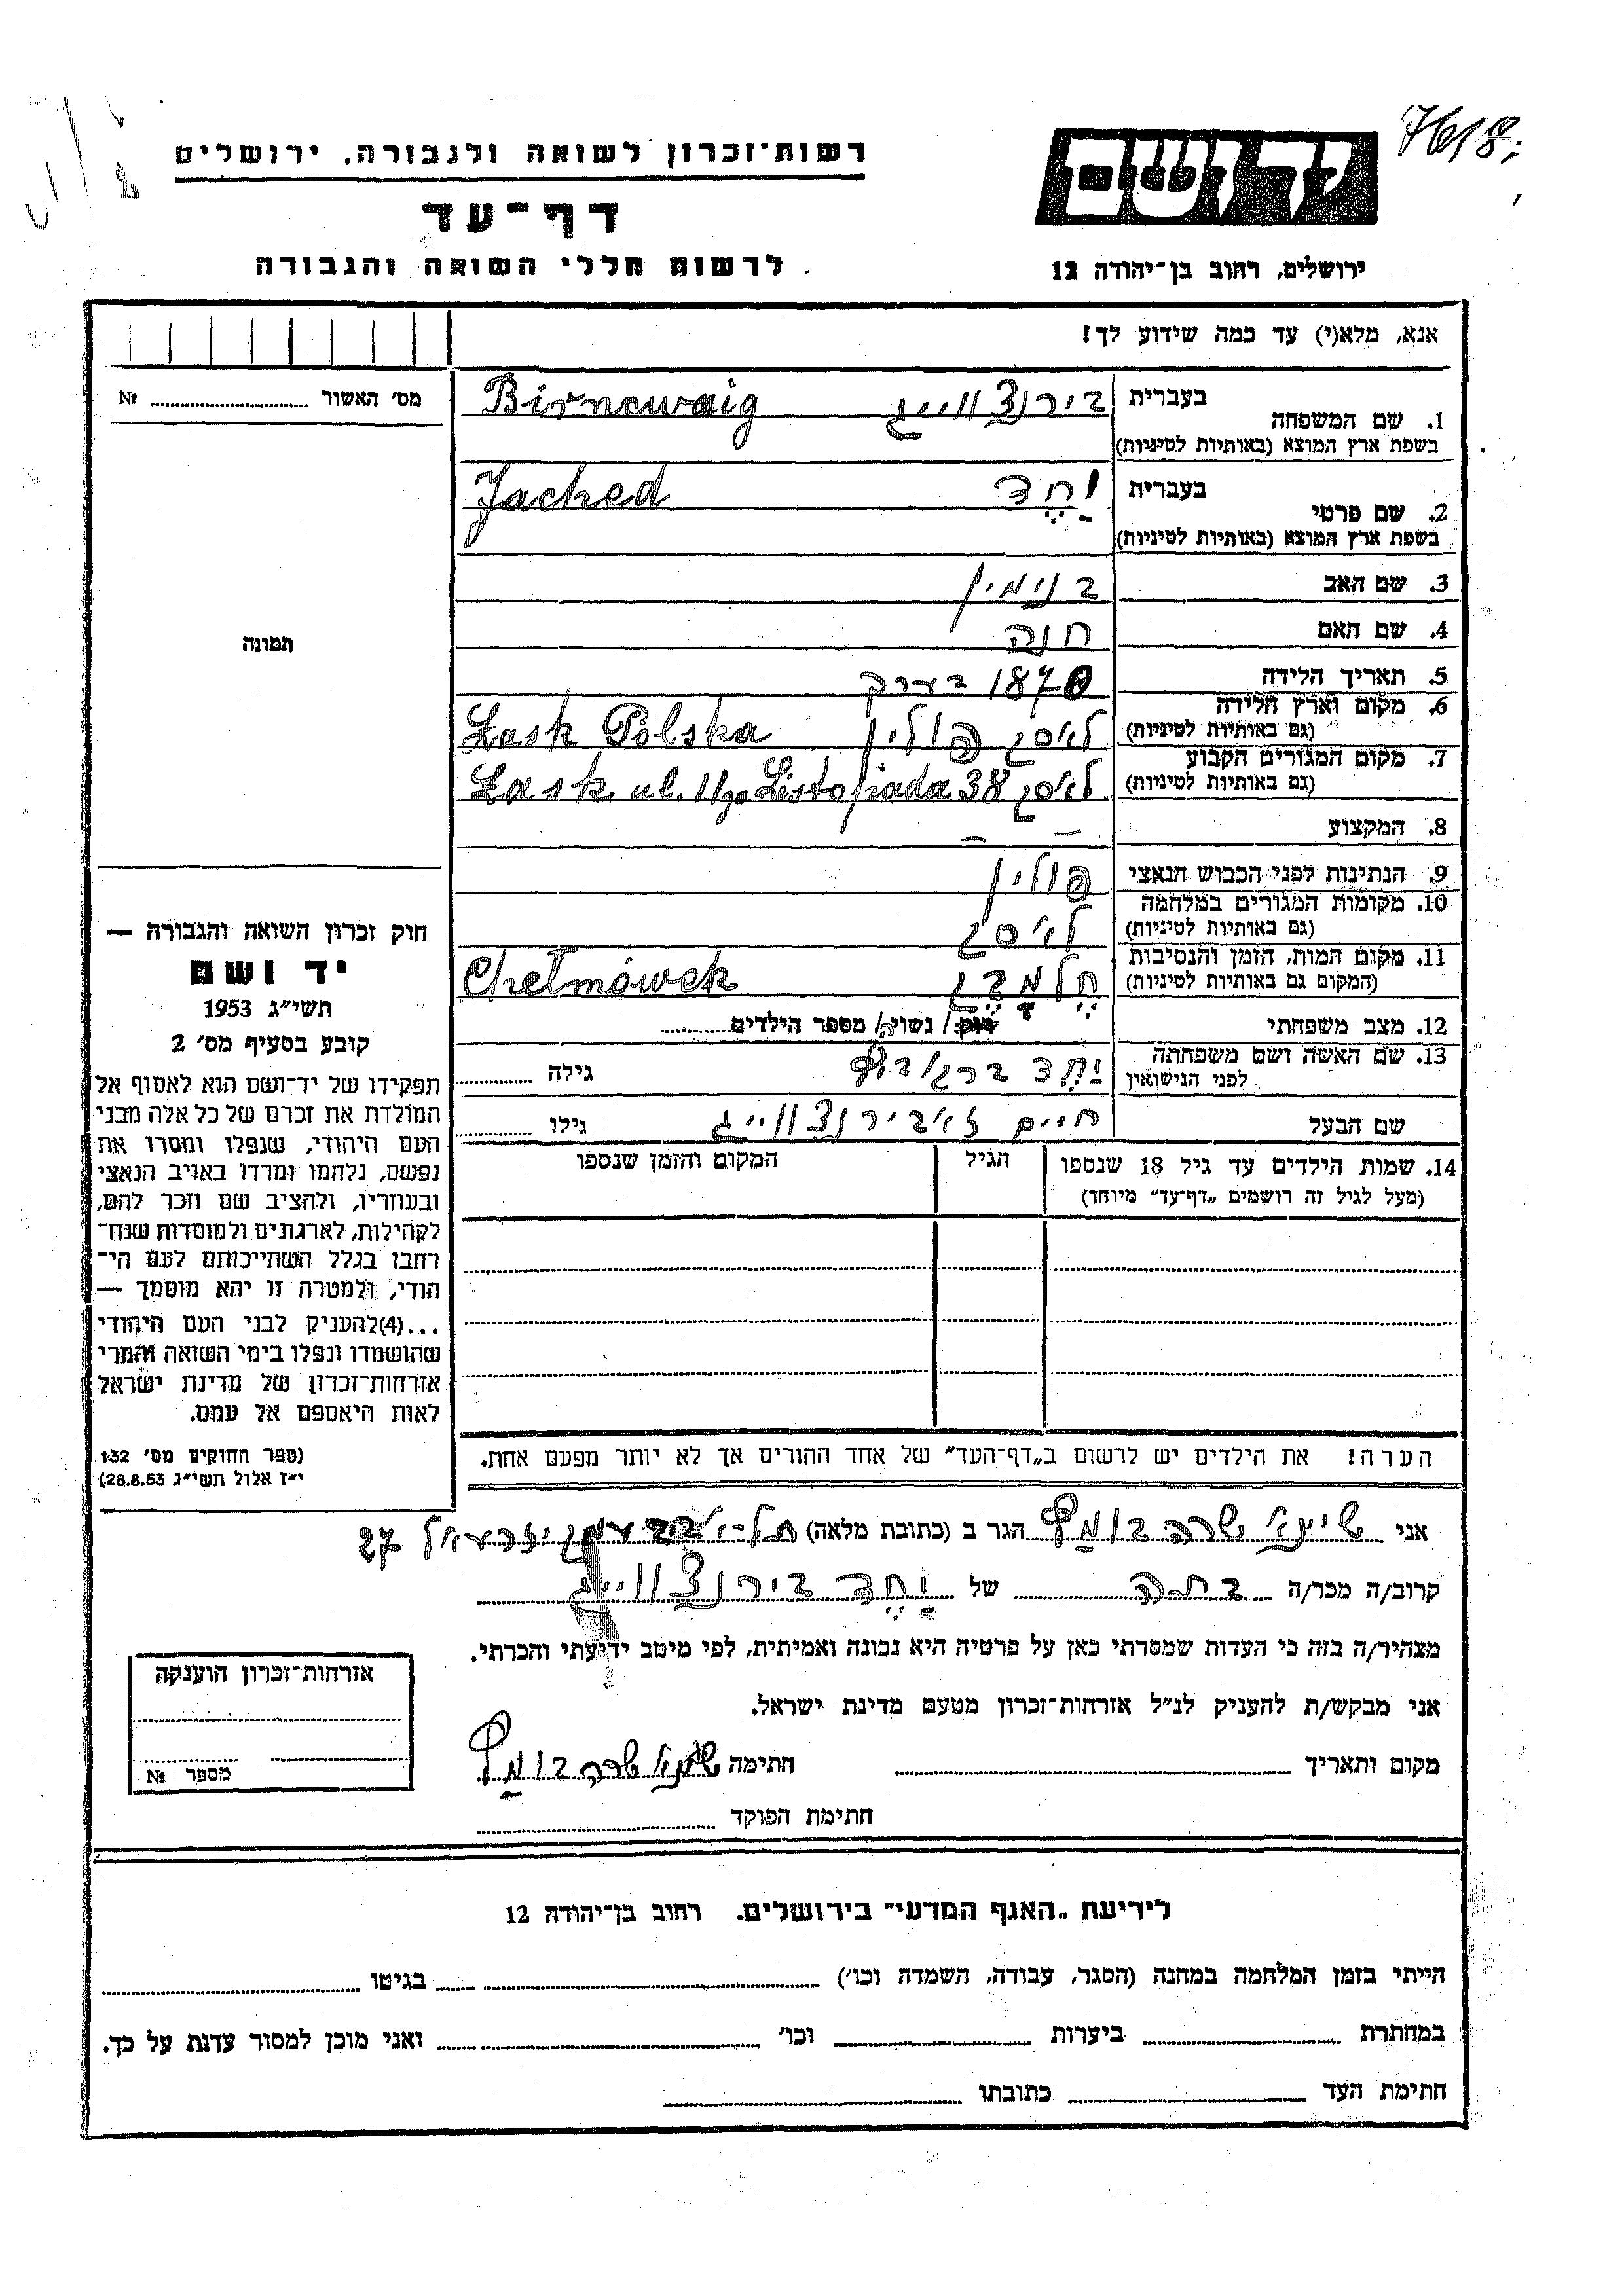 7618;
רשות־זכרון לשואה ולגבורה, ירושלים
יד ושם
דף־עד
לרשום חללי השואה והגבורה
ירושלים, רחוב בן־יהודה 12
אנא, מלא(י) עד כמה שידוע לך!
מס' האשור № 
1. שם המשפחה בעברית בירנצווייג
בשפת ארץ המוצא (באותיות לטיניות) Birncwaig
2. שם פרטי בעברית יַחֶד
בשפת ארץ המוצא (באותיות לטיניות) Jached
3. שם האב בנימין
4. שם האם חנה
5. תאריך הלידה 1870 בערך
6. מקום וארץ הלידה לאסק פולין Łask Polska
(גם באותיות לטיניות)
7. מקום המגורים הקבוע לאסק Łask ul. 11go Listopada 38
(גם באותיות לטיניות)
8. המקצוע — —
9. הנתינות לפני הכבוש הנאצי פולין
10. מקומות המגורים במלחמה לאסק
(גם באותיות לטיניות)
11. מקום המות, הזמן והנסיבות Chełmówek
(המקום גם באותיות לטיניות)
12. מצב משפחתי רוק/ נשוי/ה מספר הילדים
13. שם האשה ושם משפחתה יַחֶד גילה
לפני הנישואין
שם הבעל חיים בירנצווייג גילו
14. שמות הילדים עד גיל 18 שנספו הגיל המקום והזמן שנספו
(מעל לגיל זה רושמים „דף־עד" מיוחד)
הערה! את הילדים יש לרשום ב„דף־העד" של אחד ההורים אך לא יותר מפעם אחת.
תמונה
חוק זכרון השואה והגבורה —
יד ושם
תשי"ג 1953
קובע בסעיף מס' 2
תפקידו של יד־ושם הוא לאסוף אל
המולדת את זכרם של כל אלה מבני
העם היהודי, שנפלו ומסרו את
נפשם, נלחמו ומרדו באויב הנאצי
ובעוזריו, ולהציב שם וזכר להם,
לקהילות, לארגונים ולמוסדות שנח־
רבו בגלל השתייכותם לעם הי־
הודי, ולמטרה זו יהא מוסמך —
...(4)להעניק לבני העם היהודי
שהושמדו ונפלו בימי השואה והמרי
אזרחות־זכרון של מדינת ישראל
לאות היאספם אל עמם.
(ספר החוקים מס' 132
י"ז אלול תשי"ג 28.8.53)
אני שיינא שרה הגר ב (כתובת מלאה) תל-אביב עמק יזרעאל 27
קרוב/ה מכר/ה בתה של יַחֶד בירנצווייג
מצהיר/ה בזה כי העדות שמסרתי כאן על פרטיה היא נכונה ואמיתית, לפי מיטב ידיעתי והכרתי.
אני מבקש/ת להעניק לנ"ל אזרחות־זכרון מטעם מדינת ישראל.
מקום ותאריך חתימה שיינא שרה
חתימת הפוקד
אזרחות־זכרון הוענקה
מספר №
לידיעת „האגף המדעי" בירושלים. רחוב בן־יהודה 12
הייתי בזמן המלחמה במחנה (הסגר, עבודה, השמדה וכו') בגיטו
במחתרת ביערות וכו' ואני מוכן למסור עדות על כך.
חתימת העד כתובתו